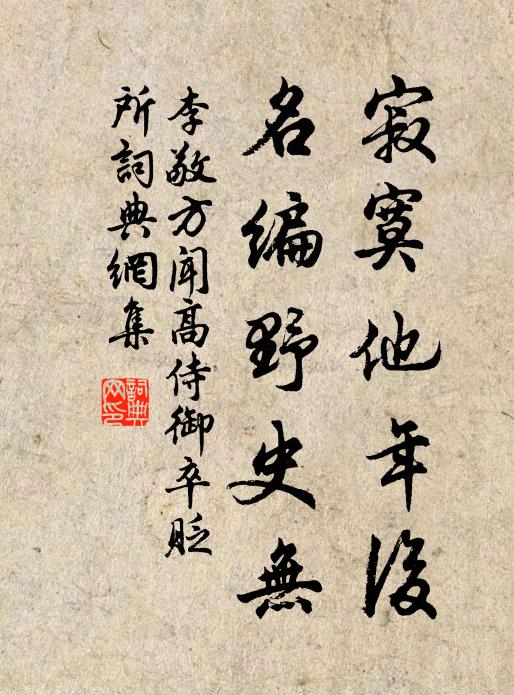 寂寞他年後
名編野史無
李敬方聞高侍御卒貶
所詞典網集
詞典網印